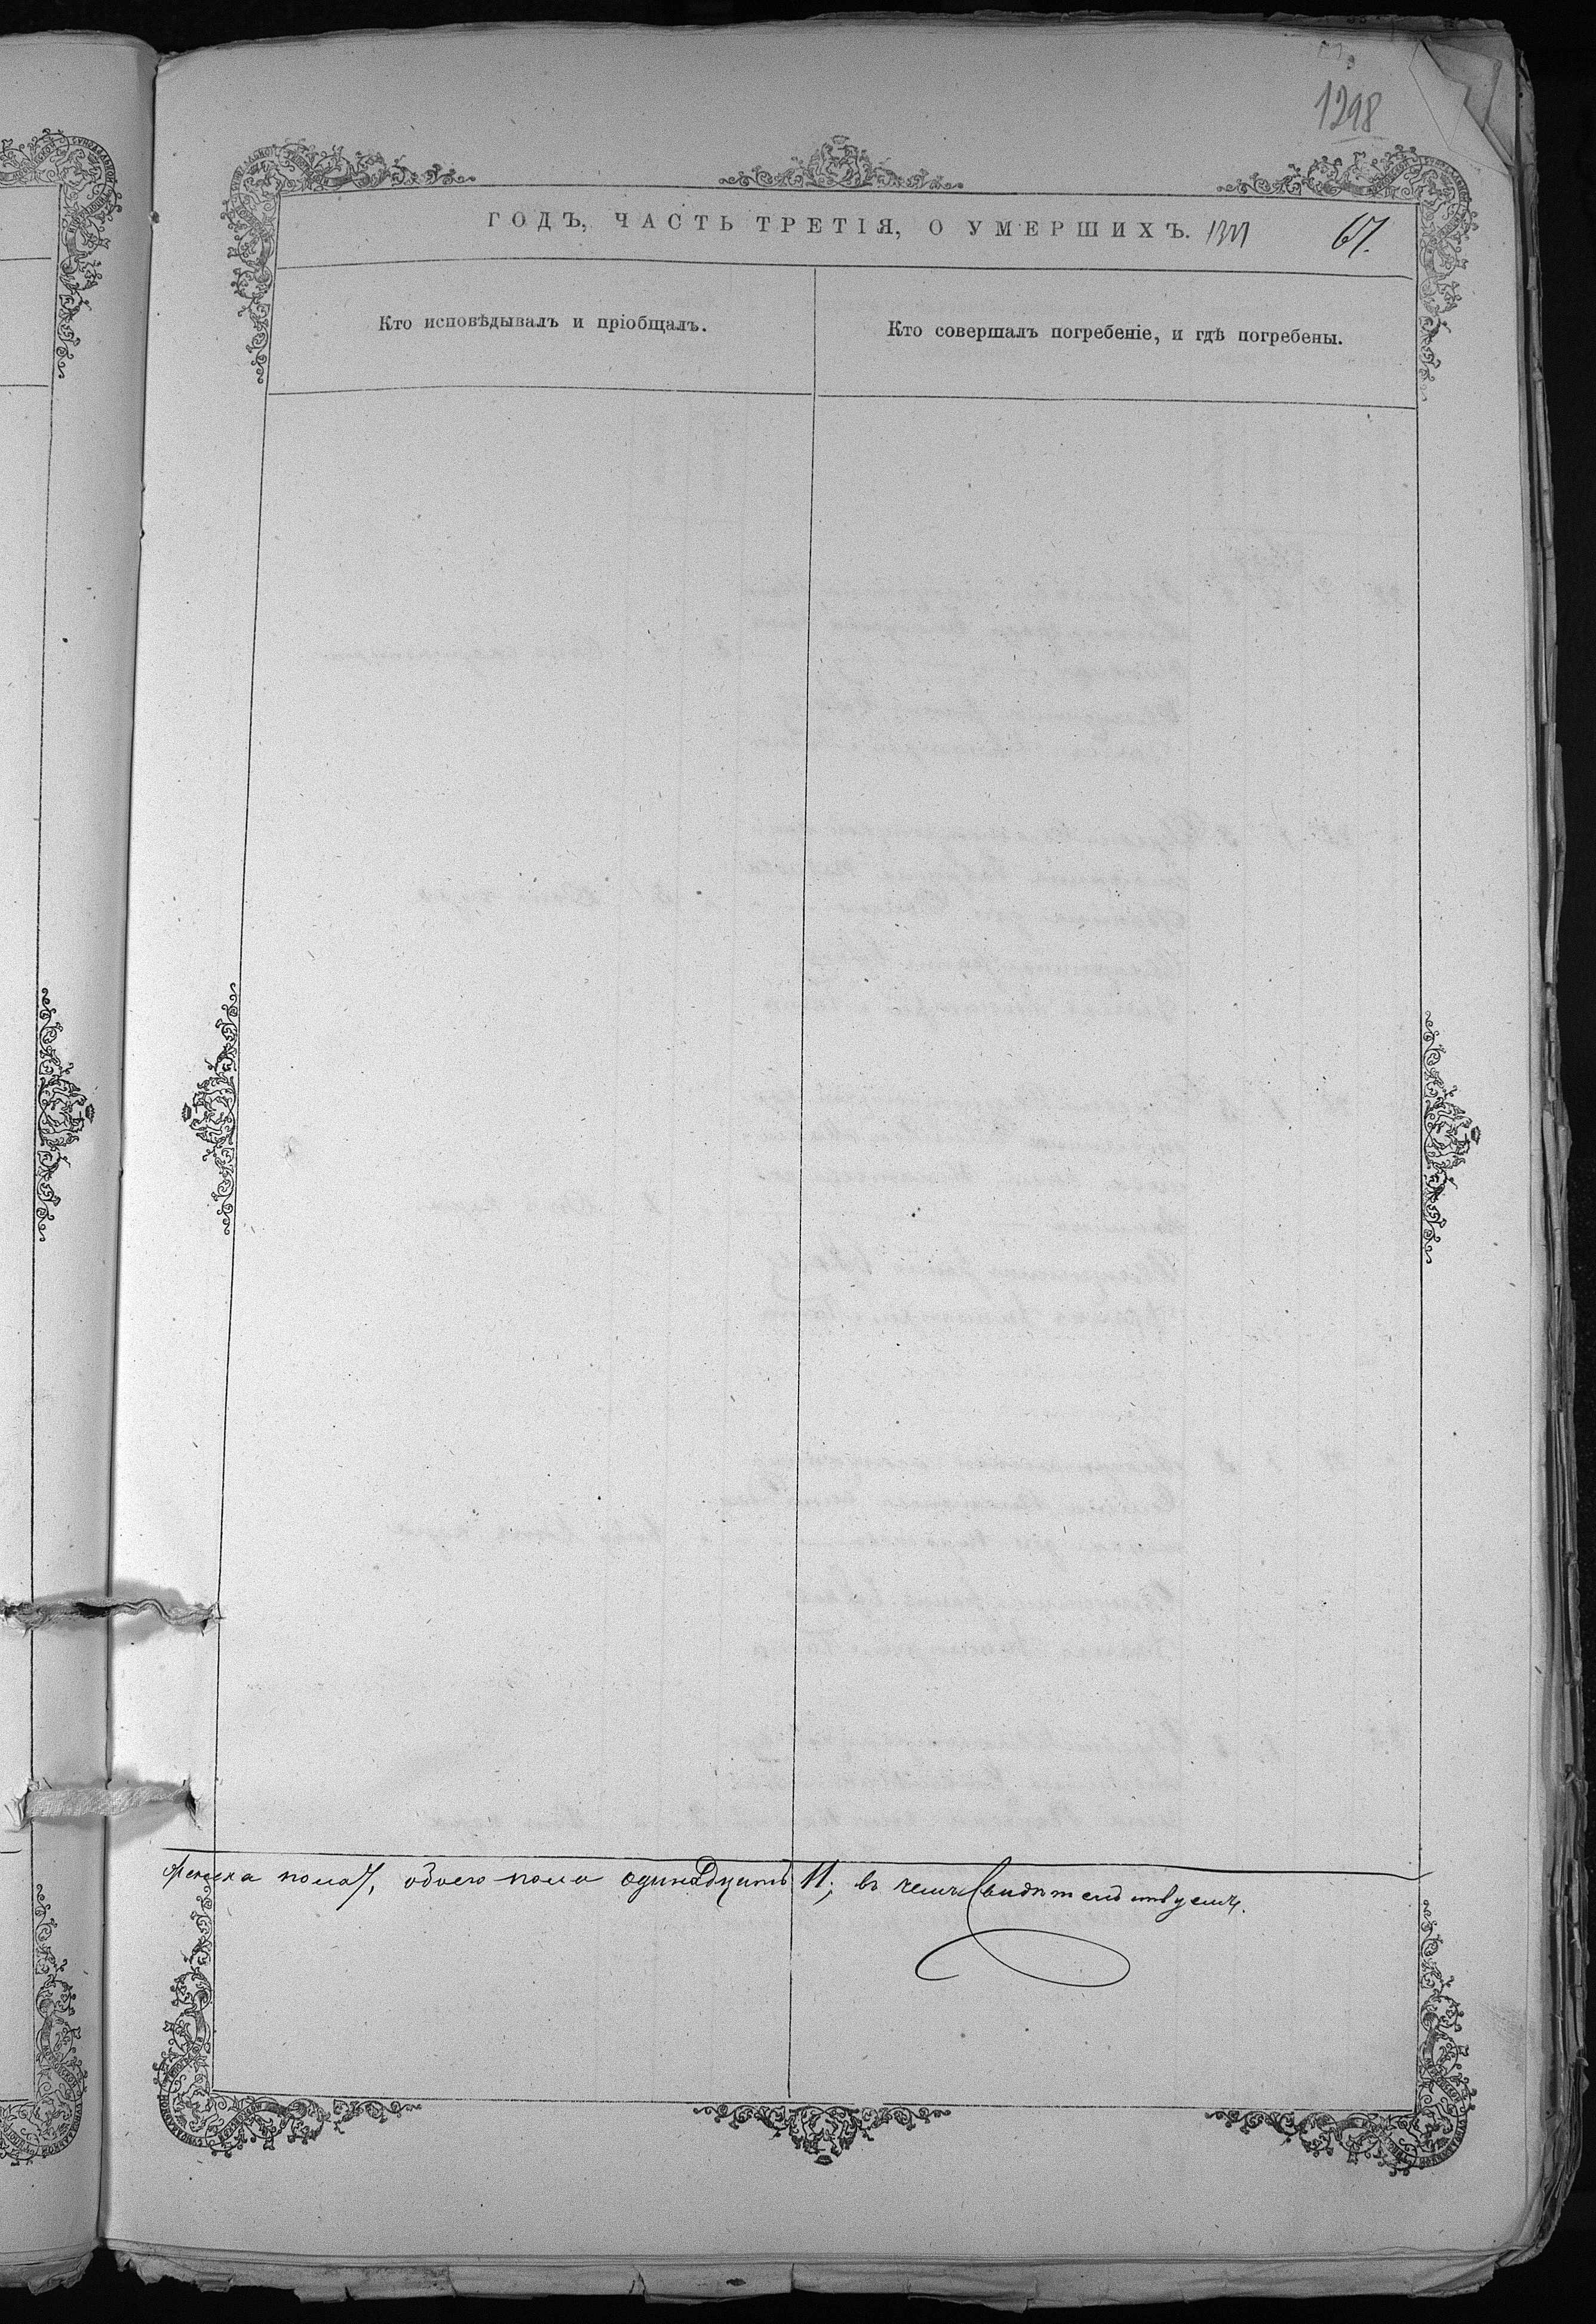 1298
ГОДЪ, ЧАСТЬ ТРЕТІЯ, О УМЕРШИХЪ. 67.
Кто исповѣдывалъ и пріобщалъ.
Кто совершалъ погребеніе, и гдѣ погребены.
женска пола 7, обоего пола одинадцать 11; въ чемъ Свидѣтельствуемъ.